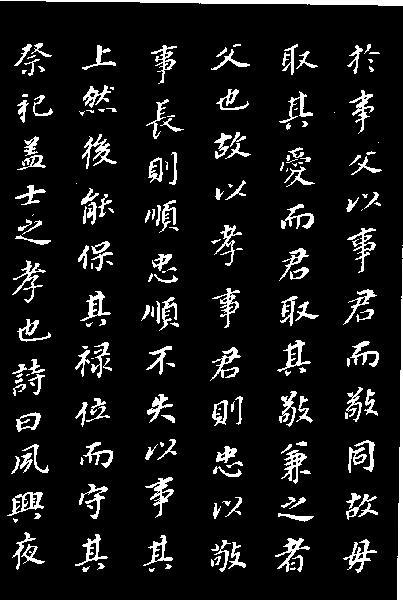 於事父以事君而敬同故母
取其愛而君取其敬兼之者
父也故以孝事君則忠以敬
事長則順忠順不失以事其
上然後能保其禄位而守其
祭祀盖士之孝也詩曰夙興夜